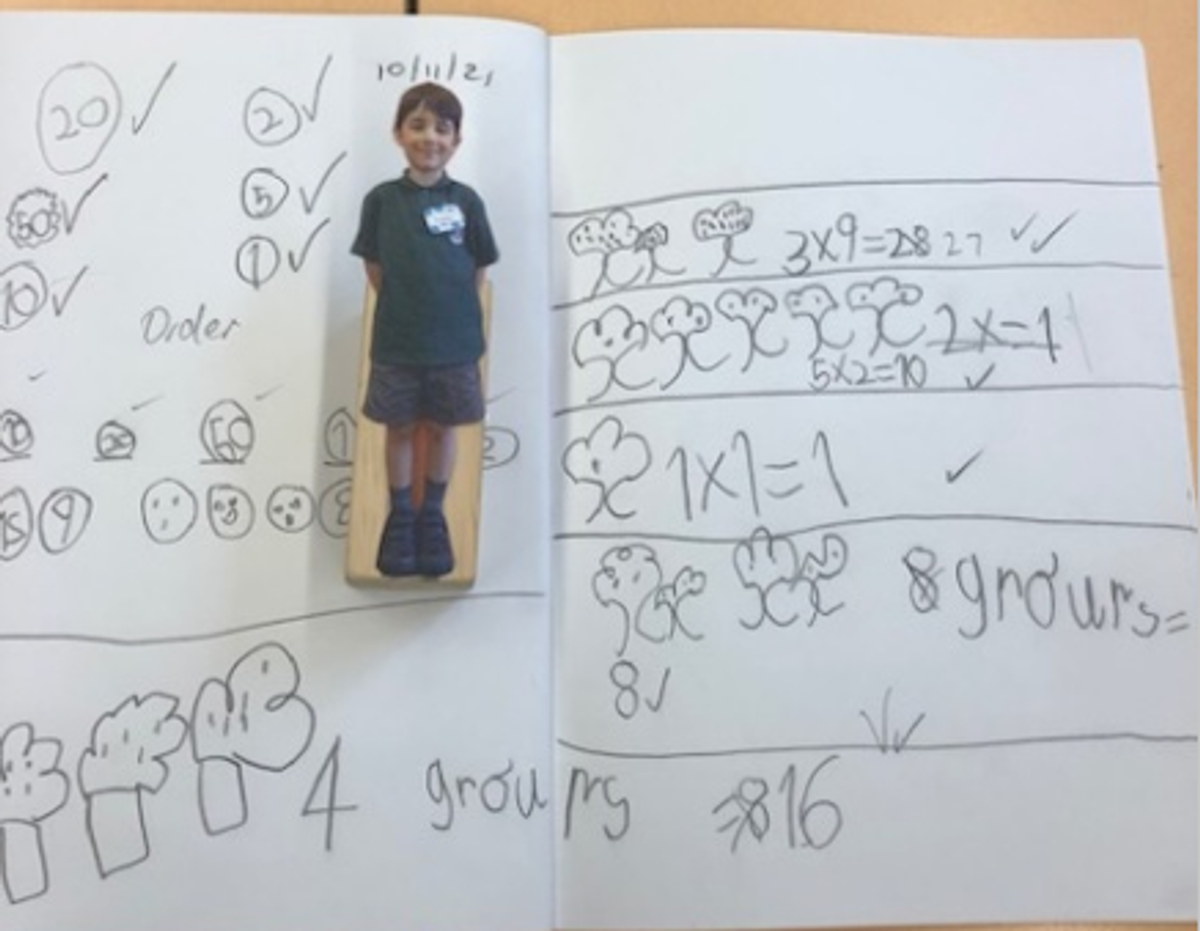 10/11/21
20 2
50 5
10 1
Order
20 50 1 2
15 9 8
4 groups =816
3x9=28 27
2x=1
5x2=10
1x1=1
8 groups=
8